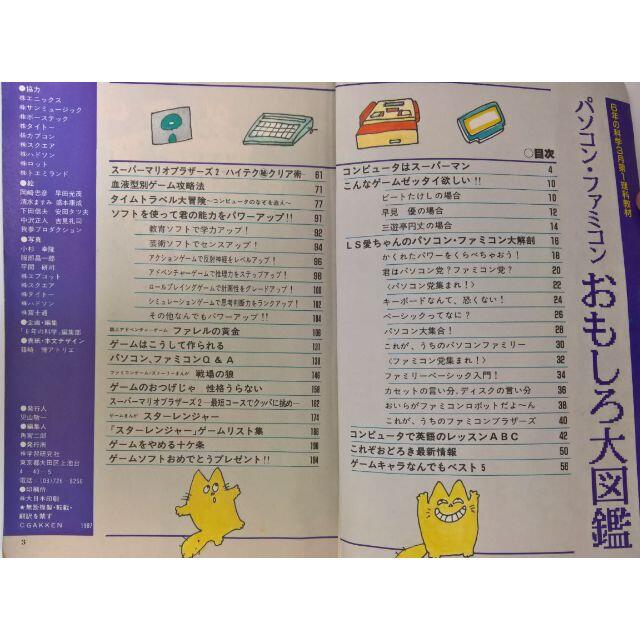 6年の科学3月第1理科教材
パソコン・ファミコン
おもしろ大図鑑
○目次
コンピュータはスーパーマン 4
こんなゲームゼッタイ欲しい!! 10
ビートたけしの場合 10
早見 優の場合 12
三遊亭円丈の場合 14
LS愛ちゃんのパソコン・ファミコン大解剖 16
かくれたパワーをくらべちゃおう! 18
君はパソコン党?ファミコン党? 20
〈パソコン党集まれ!〉 22
キーボードなんて、恐くない! 24
ベーシックってなに? 26
パソコン大集合! 28
これが、うちのパソコンファミリー 30
〈ファミコン党集まれ!〉 32
ファミリーベーシック入門! 34
カセットの言い分、ディスクの言い分 36
おいらがファミコンロボットだよ〜ん 38
これが、うちのファミコンブラザーズ 40
コンピュータで英語のレッスンABC 42
これぞおどろき最新情報 50
ゲームキャラなんでもベスト5 56
スーパーマリオブラザーズ2-ハイテク㊙クリア術- 61
血液型別ゲーム攻略法 71
タイムトラベル大冒険〜コンピュータのなぞを追え〜 77
ソフトを使って君の能力をパワーアップ!! 91
教育ソフトで学力アップ! 92
芸術ソフトでセンスアップ! 94
アクションゲームで反射神経をレベルアップ! 96
アドベンチャーゲームで推理力をステップアップ! 98
ロールプレイングゲームで計画性をグレードアップ! 100
シミュレーションゲームで思考判断力をランクアップ! 102
その他なんでもパワーアップ! 104
アドベンチャーゲーム ファレルの黄金 106
ゲームはこうして作られる 131
パソコン、ファミコンQ&A 138
ファミコンゲーム・ストーリーまんが 戦場の狼 146
ゲームのおつげじゃ 性格うらない 158
スーパーマリオブラザーズ2-最短コースでクッパに挑め- 162
ゲームまんが スターレンジャー 174
「スターレンジャー」ゲームリスト集 186
ゲームをやめる十ケ条 190
ゲームソフトおめでとうプレゼント!! 184
●協力
㈱エニックス
㈱サンミュージック
㈱ポーステック
㈱タイトー
㈱カプコン
㈱スクエア
㈱ハドソン
㈱ロット
㈱トミーランド
●絵
岡崎忠彦 早田光茂
清水ますみ 盛本康成
下田信夫 安田タツ夫
中沢正人 吉見礼司
我夢プロダクション
●写真
小杉 幸隆
服部昌一郎
平間 研司
㈱エブコット
㈱スクエア
㈱タイトー
㈱ハドソン
㈱富士通
●企画・編集
「6年の科学」編集部
●表紙・本文デザイン
篠崎 博アトリエ
●発行人
児山敬一
●編集人
角宮二郎
●発行所
㈱学習研究社
東京都大田区上池台
4-40-5
電話 (03)726-8256
●印刷所
㈱大日本印刷
★無断複製・転載・
翻訳を禁ず
©GAKKEN 1987
3